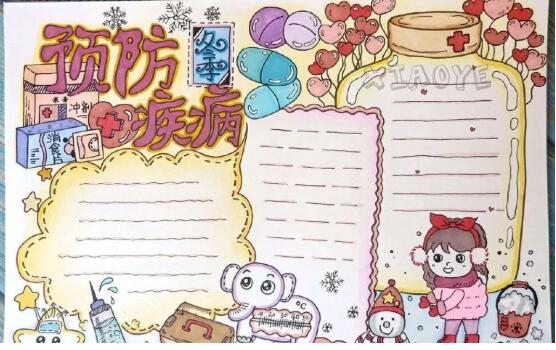 预防
冬季
疾病
冲剂
消食片
XIAOYE
℃